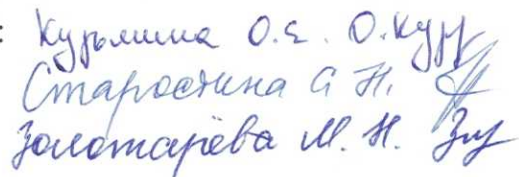 : Кузьмина О.Е. О.Кузь
Старостина А Н.
Золотарёва М. Н. Зл